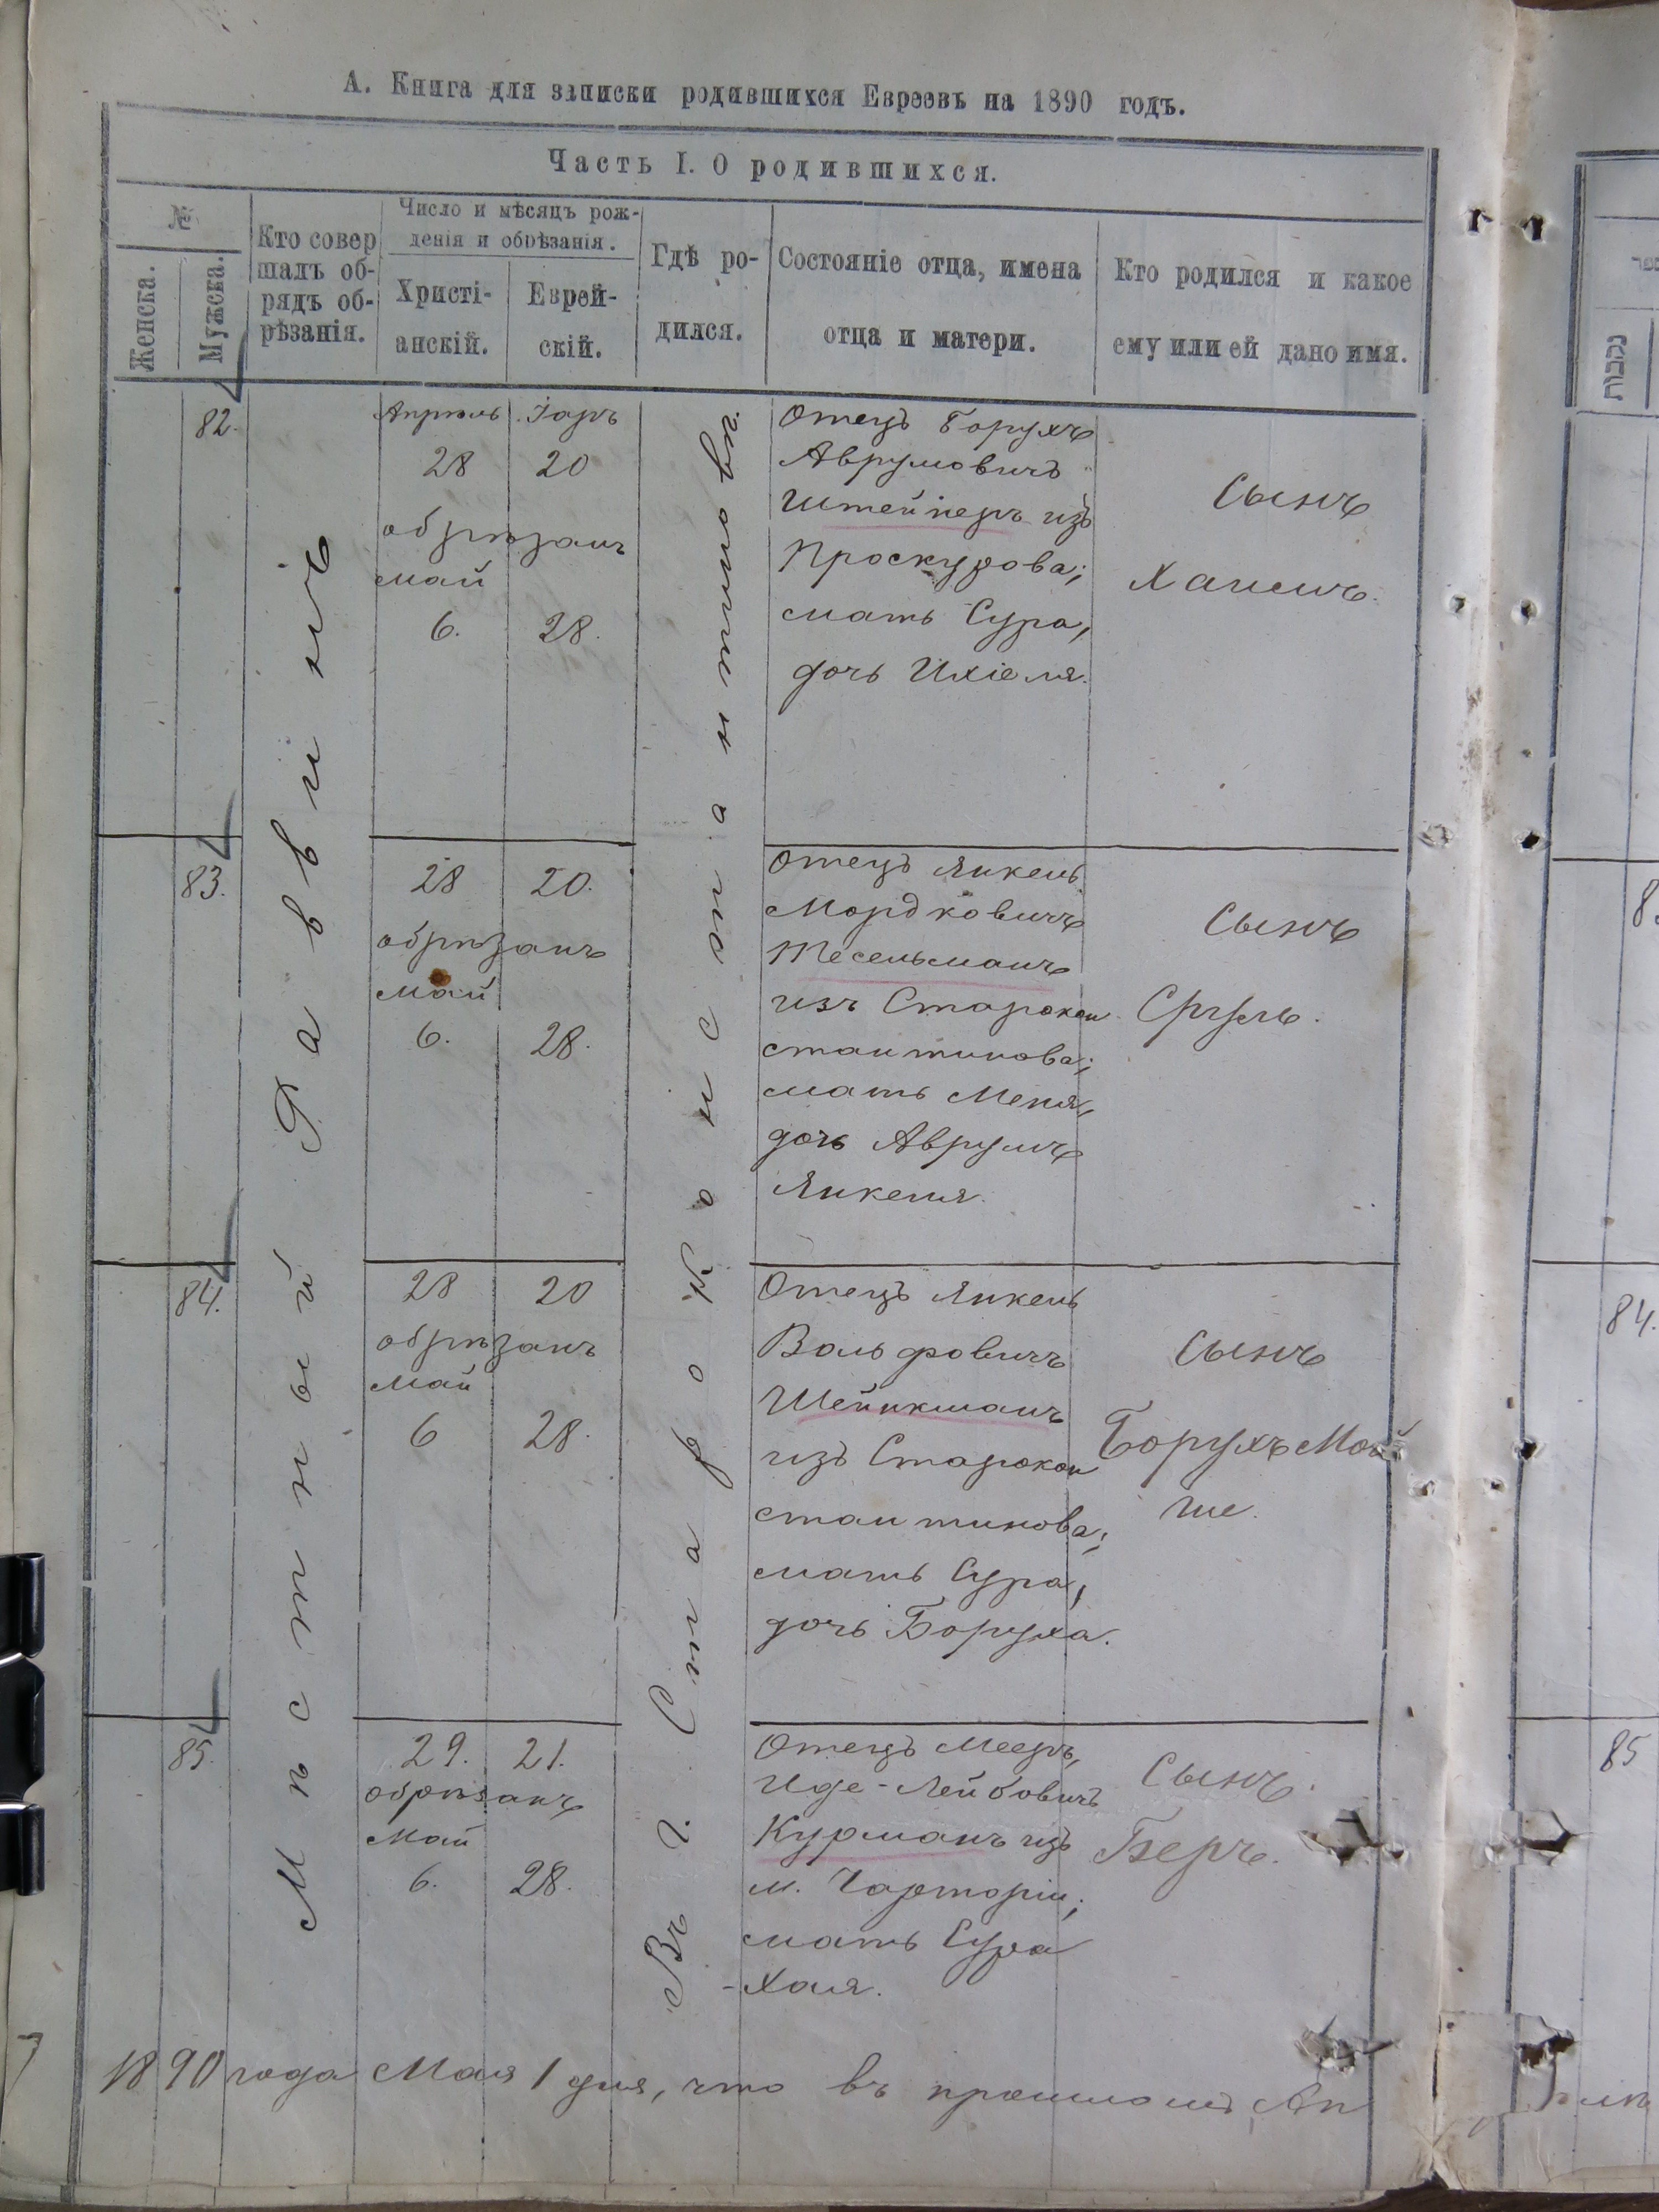 А. Книга для записки родившихся Евреевъ на 1890 годъ.
Часть I. О родившихся.
№
Женска.
Мужска.
Кто совер
шалъ об-
рядъ об-
рѣзанія.
Число и мѣсяцъ рож-
денія и обрѣзанія.
Христі-
анскій.
Еврей-
скій.
Гдѣ ро-
дился.
Состояніе отца, имена
отца и матери.
Кто родился и какое
ему или ей дано имя.
Мѣстный Раввинъ
Въ г. Староконстантиновѣ
82.
Апрѣль Іаръ
28 20
обрѣзанъ
май
6. 28.
Отецъ Борухъ
Аврумовичъ
Штейнеръ изъ
Проскурова;
мать Сура,
дочь Ихіеля.
Сынъ
Хаимъ.
83.
28 20.
обрѣзанъ
май
6. 28.
Отецъ Янкель
Мордковичъ
Тесельманъ
изъ Старокон
стантинова;
мать Меня,
дочь Аврумъ
Янкеля.
Сынъ
Сруль.
84.
28 20
обрѣзанъ
май
6 28.
Отецъ Янкель
Вольфовичъ
Шейнкманъ
изъ Старокон
стантинова;
мать Сура,
дочь Боруха.
Сынъ
Борухъ Мой
ше.
85.
29. 21.
обрѣзанъ
Май
6. 28.
Отецъ Мееръ,
Иде-Лейбовичъ
Курманъ изъ
м. Чарторіи;
мать Сура
-Хая.
Сынъ.
Беръ.
1890 года Мая 1 дня, что въ прошломъ Ап
נקבות
84.
85